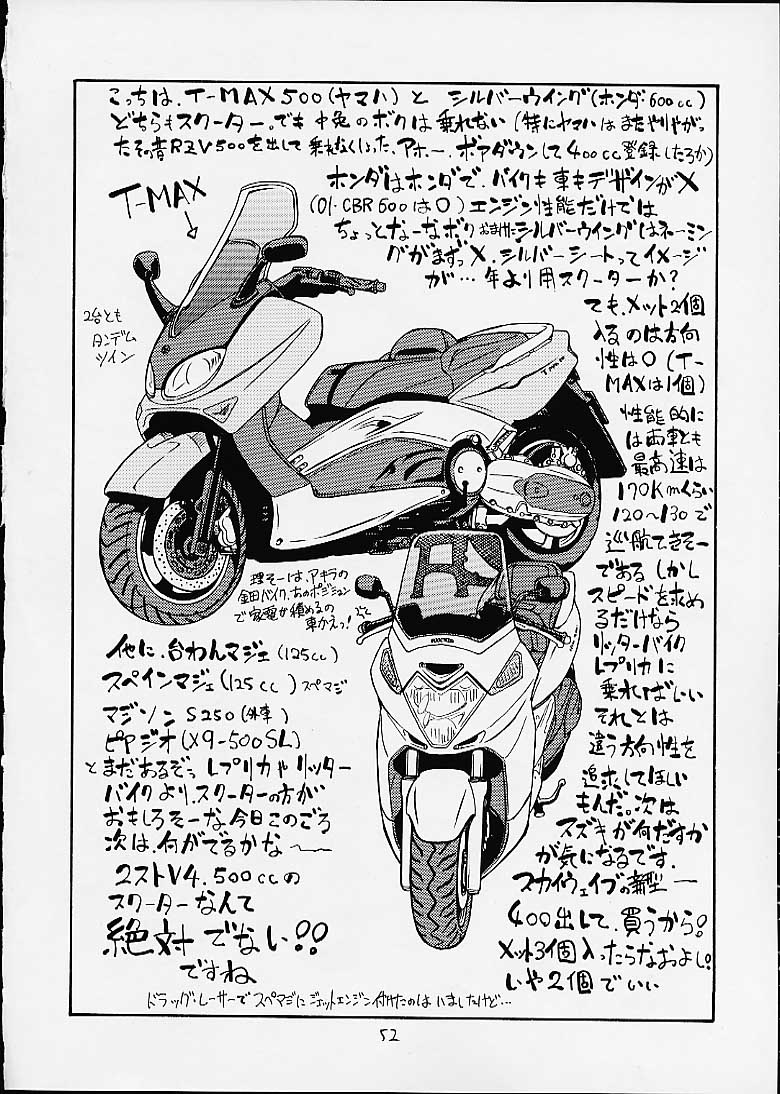 こっちは、T-MAX500(ヤマハ)と シルバーウイング(ホンダ・600cc)
どちらもスクーター。でも 中免のボクは乗れない(特にヤマハはまたやりやがっ
たその昔RZV500を出して乗れなくしった、アホー、ボアダウンして400cc登録したろか)
T-MAX
ホンダはホンダで、バイクも車もデザインが×
(01・CBR600は○)エンジン性能だけでは
ちょっとなーなボク おまけにシルバーウイングはネーミン
グがまずっ×、シルバーシートってイメージ
が…年より用スクーターか?
2台とも
タンデム
ツイン
でも、メット2個
入るのは方向
性は○(T-
MAXは1個)
性能的に
は両車とも
最高速は
170Kmくらい
120〜130で
巡航できそー
である しかし
スピードを求め
るだけなら
リッターバイク
レプリカに
乗ればいい
それとは
違う方向性を
追求してほしい
もんだ。次は
スズキが何だすか
が気になるです、
スカイウェイブの新型ー
400出して、買うから!
メット3個入ったらなおよし!
いや2個でいい
理そーは、アキラの
金田バイク、あのポジション
で家電が積めるの
車かえっ!
他に、台わんマジェ(125cc)
スペインマジェ(125cc)スペマジ
マジソン S250(外車)
ピヤジオ(X9-500SL)
とまだあるぞっ レプリカやリッター
バイクより、スクーターの方が
おもしろそーな今日このごろ
次は、何がでるかな〜
2ストV4、500ccの
スクーターなんて
絶対でない!!
ですね
ドラッグ・レーサーでスペマジにジェットエンジン付けたのはいましたけど…
52